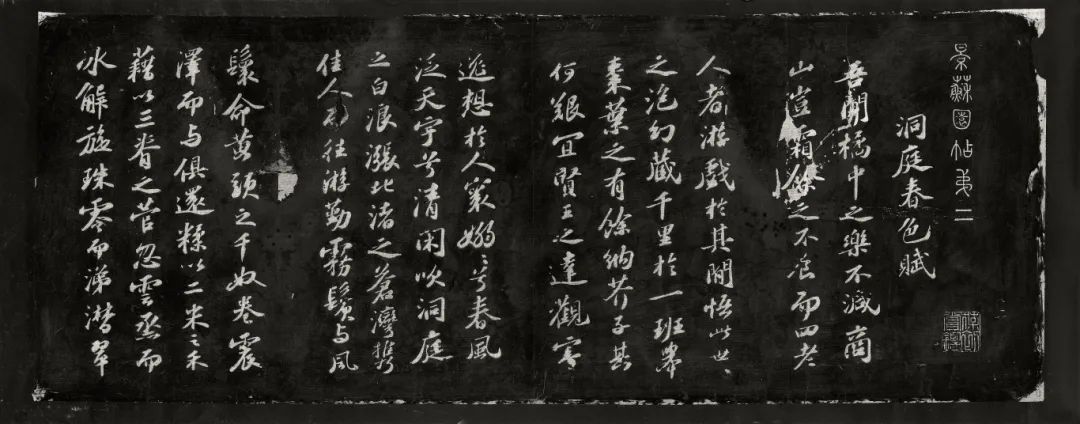 景蘇園帖弟二
洞庭春色賦
吾聞橘中之樂不減商
山豈霜餘之不食而四老
人者游戲於其間悟此世
之泡幻藏千里於一班舉
棗葉之有餘納芥子其
何艱宜賢王之達觀寄
逸想於人寰嫋〻兮春風
泛天宇兮清閑吹洞庭
之白浪漲北渚之蒼灣攜
佳人而往游勤霧鬢与風
鬟命黃頭之千奴卷震
澤而与俱還糅以二米之禾
藉以三脊之菅忽雲烝而
冰解旋珠零而涕潸翠